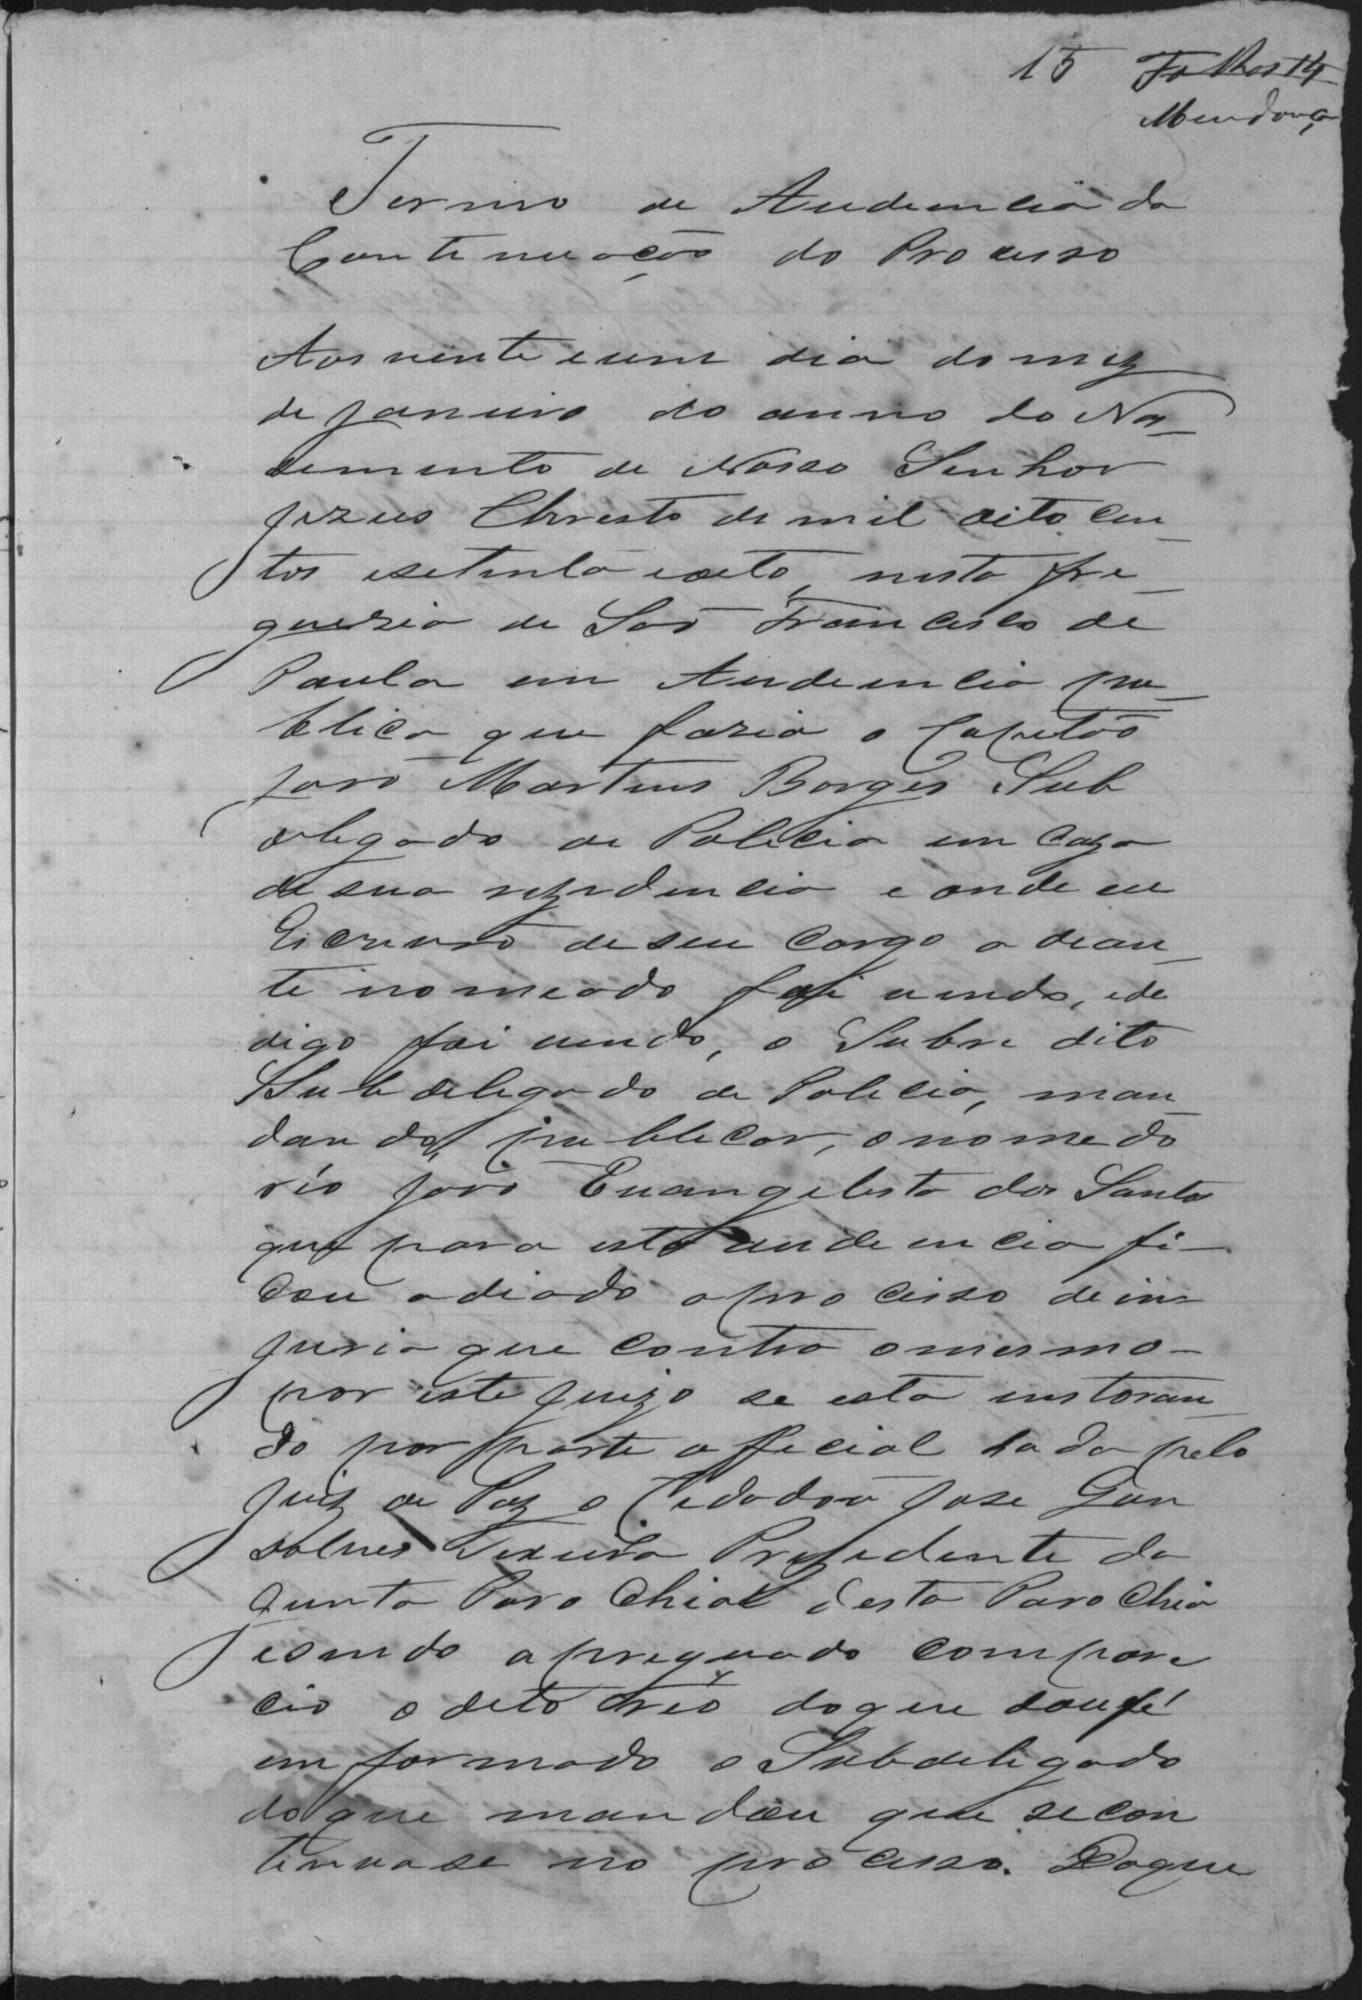 15 Folhas 14
Mendonça
Termo de Audiencia da
Continuação do Processo
Aos vinte e um dia do mez
de janeiro do anno do Na-
cimento de Nosso Senhor
jezus Christo de mil oito cen-
tos e setenta e oito, nesta fre-
guezia de São Francisco de
Paula em Audiencia pu-
blica que fazia o Capitão
João Martins Borges Sub
delegado de Policia em caza
de sua rezidencia e onde eu
Escrivão de seu Cargo a dean-
te nomeado foi vindo, e de
digo foi vindo, o Subre dito
Subdelegado de Policia, man-
dando, publicar, o nome do
réo João Evangelista dos Santos
que para esta audiencia fi-
cou adiado o processo de in-
juria que contra o mesmo-
por este juizo se esta instoran-
do por parte oficial dada pelo
juiz de Paz o Cidadão José Gon
salves Texeira Prezidente da
junta Parochial desta Parochia
e sendo apreguado compare
cio o dito réo do que dou fé
em formado o Subdeligado
do que mandou que se con
tinuase no processo. Do que